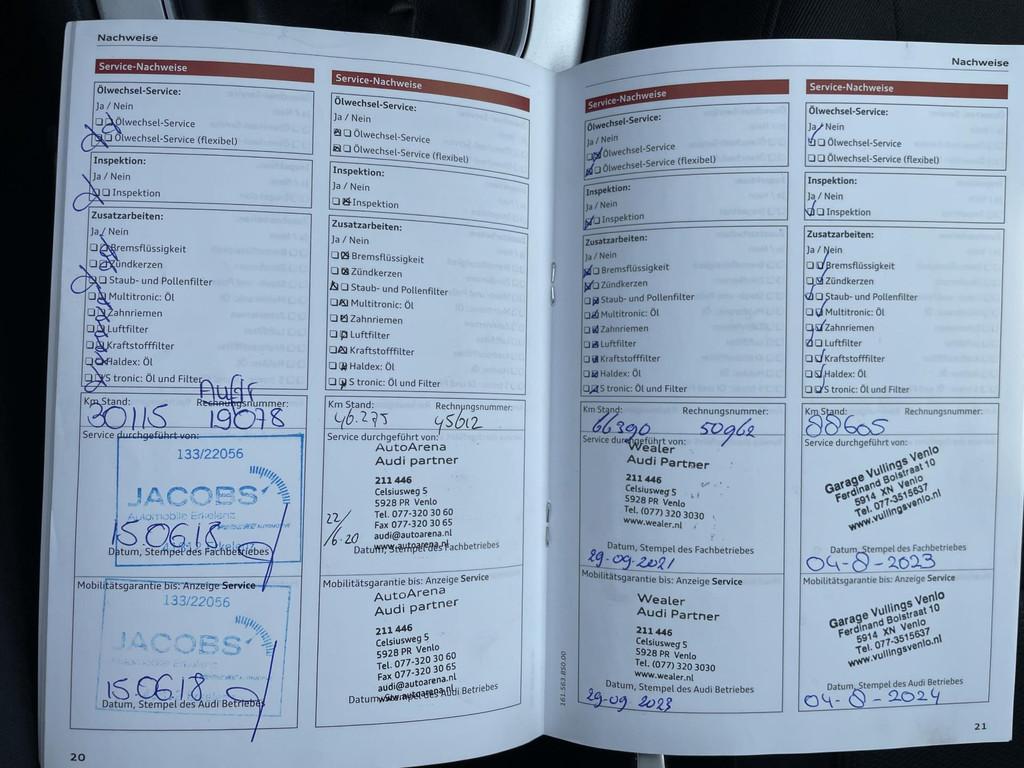 Nachweise
Service-Nachweise
Ölwechsel-Service:
Ja / Nein
Ölwechsel-Service
Ölwechsel-Service (flexibel)
Inspektion:
Ja / Nein
Inspektion
Zusatzarbeiten:
Ja / Nein
Bremsflüssigkeit
Zündkerzen
Staub- und Pollenfilter
Multitronic: Öl
Zahnriemen
Luftfilter
Kraftstofffilter
Haldex: Öl
S tronic: Öl und Filter
Auftr
Km Stand: Rechnungsnummer:
30115 19078
Service durchgeführt von:
133/22056
JACOBS
Automobile Erkelenz
15.06.18
Datum, Stempel des Fachbetriebes
Mobilitätsgarantie bis: Anzeige Service
133/22056
JACOBS
15.06.18
Datum, Stempel des Audi Betriebes
20
Service-Nachweise
Ölwechsel-Service:
Ja / Nein
Ölwechsel-Service
Ölwechsel-Service (flexibel)
Inspektion:
Ja / Nein
Inspektion
Zusatzarbeiten:
Ja / Nein
Bremsflüssigkeit
Zündkerzen
Staub- und Pollenfilter
Multitronic: Öl
Zahnriemen
Luftfilter
Kraftstofffilter
Haldex: Öl
S tronic: Öl und Filter
Km Stand: Rechnungsnummer:
46.275 45612
Service durchgeführt von:
AutoArena
Audi partner
211 446
Celsiusweg 5
5928 PR Venlo
Tel. 077-320 30 60
Fax 077-320 30 65
audi@autoarena.nl
www.autoarena.nl
22/
/6-20
Datum, Stempel des Fachbetriebes
Mobilitätsgarantie bis: Anzeige Service
AutoArena
Audi partner
211 446
Celsiusweg 5
5928 PR Venlo
Tel. 077-320 30 60
Fax 077-320 30 65
audi@autoarena.nl
www.autoarena.nl
Datum, Stempel des Audi Betriebes
Nachweise
Service-Nachweise
Ölwechsel-Service:
Ja / Nein
Ölwechsel-Service
Ölwechsel-Service (flexibel)
Inspektion:
Ja / Nein
Inspektion
Zusatzarbeiten:
Ja / Nein
Bremsflüssigkeit
Zündkerzen
Staub- und Pollenfilter
Multitronic: Öl
Zahnriemen
Luftfilter
Kraftstofffilter
Haldex: Öl
S tronic: Öl und Filter
Km Stand: Rechnungsnummer:
66390 50962
Service durchgeführt von:
Wealer
Audi Partner
211 446
Celsiusweg 5
5928 PR Venlo
Tel. (077) 320 3030
www.wealer.nl
Datum, Stempel des Fachbetriebes
29-09-2021
Mobilitätsgarantie bis: Anzeige Service
Wealer
Audi Partner
211 446
Celsiusweg 5
5928 PR Venlo
Tel. (077) 320 3030
www.wealer.nl
Datum, Stempel des Audi Betriebes
29-09-2023
161.563.850.00
Service-Nachweise
Ölwechsel-Service:
Ja / Nein
Ölwechsel-Service
Ölwechsel-Service (flexibel)
Inspektion:
Ja / Nein
Inspektion
Zusatzarbeiten:
Ja / Nein
Bremsflüssigkeit
Zündkerzen
Staub- und Pollenfilter
Multitronic: Öl
Zahnriemen
Luftfilter
Kraftstofffilter
Haldex: Öl
S tronic: Öl und Filter
Km Stand: Rechnungsnummer:
88605
Service durchgeführt von:
Garage Vullings Venlo
Ferdinand Bolstraat 10
5914 XN Venlo
Tel. 077-3515637
www.vullingsvenlo.nl
Datum, Stempel des Fachbetriebes
04-8-2023
Mobilitätsgarantie bis: Anzeige Service
Garage Vullings Venlo
Ferdinand Bolstraat 10
5914 XN Venlo
Tel. 077-3515637
www.vullingsvenlo.nl
Datum, Stempel des Audi Betriebes
04-8-2024
21